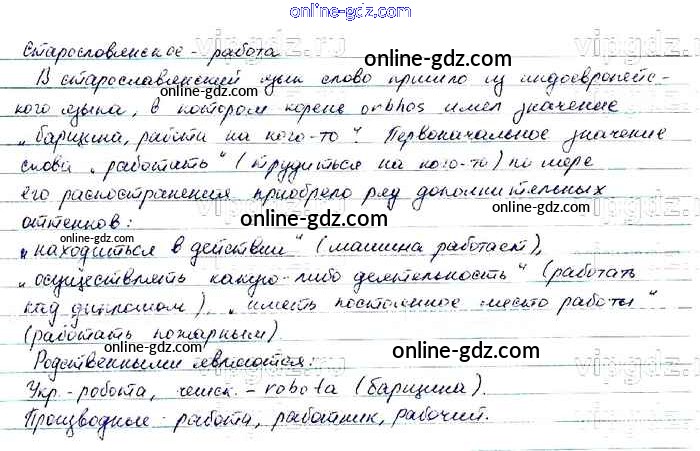 online-gdz.com
Старословянское - работа
online-gdz.com
В старославянский язык слово пришло из индоевропейс-
кого языка, в котором корень orbhos имел значение
„барщина, работи на кого-то". Первоначальное значение
слова „работать" (трудиться на кого-то) по мере
его распостранения приобрело ряд дополнительных
оттенков:
online-gdz.com
„находиться в действии" (машина работает),
„осуществлять какую-либо деятельность" (работать
над дипломом), „иметь постоянное место работы"
(работать пожарным)
online-gdz.com
Родственными являются:
Укр.- робота, чешск. - robota (барщина).
online-gdz.com
Производные - работа, работник, рабочий.